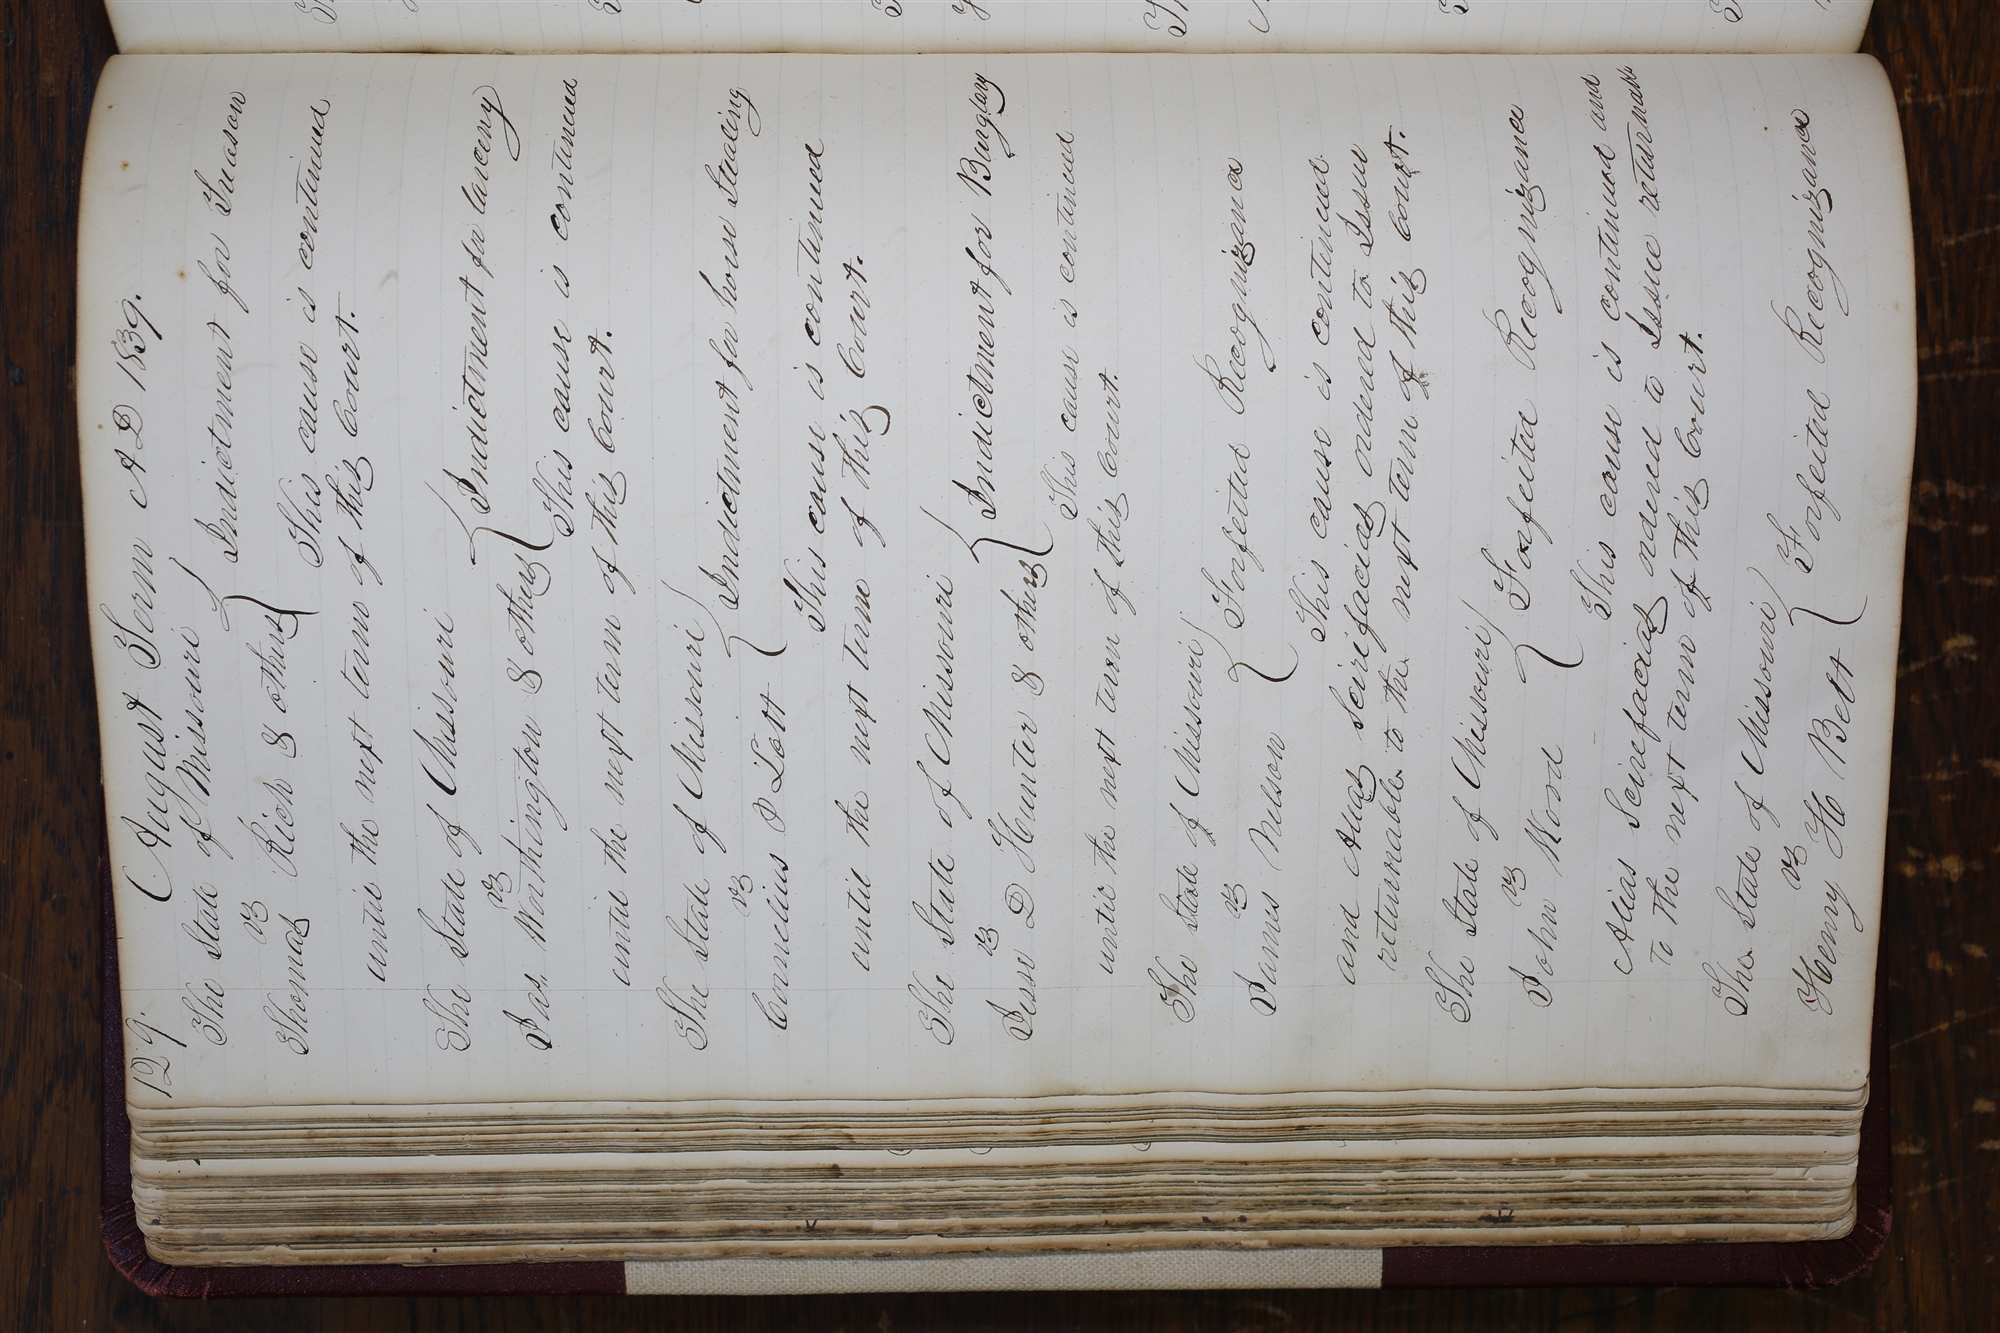 129. August Term AD 1839.
The State of Missouri
vs
Thomas Rich & others
Indictment for Treason
This cause is continued
until the next term of this Court.
The State of Missouri
vs
Jas. Worthington & others
Indictment for larceny
This cause is continued
until the next term of this Court.
The State of Missouri
vs
Cornelius P Lott
Indictment for horse Stealing
This cause is continued
until the next term of this Court.
The State of Missouri
vs
Jesse D Hunter & others
Indictment for Burglay
This cause is continued
until the next term of this Court.
The State of Missouri
vs
James Nelson
Forfeited Recognizance
This cause is continued
and Alias Scirifacias ordered to Issue
returnable to the next term of this Court.
The State of Missouri
vs
John Wood
Forfeited Recognizance
This cause is continued and
Alias Scirefacias ordered to Issue returnable
to the next term of this Court.
The State of Missouri
vs
Henry H Belt
Forfeited Recognizance